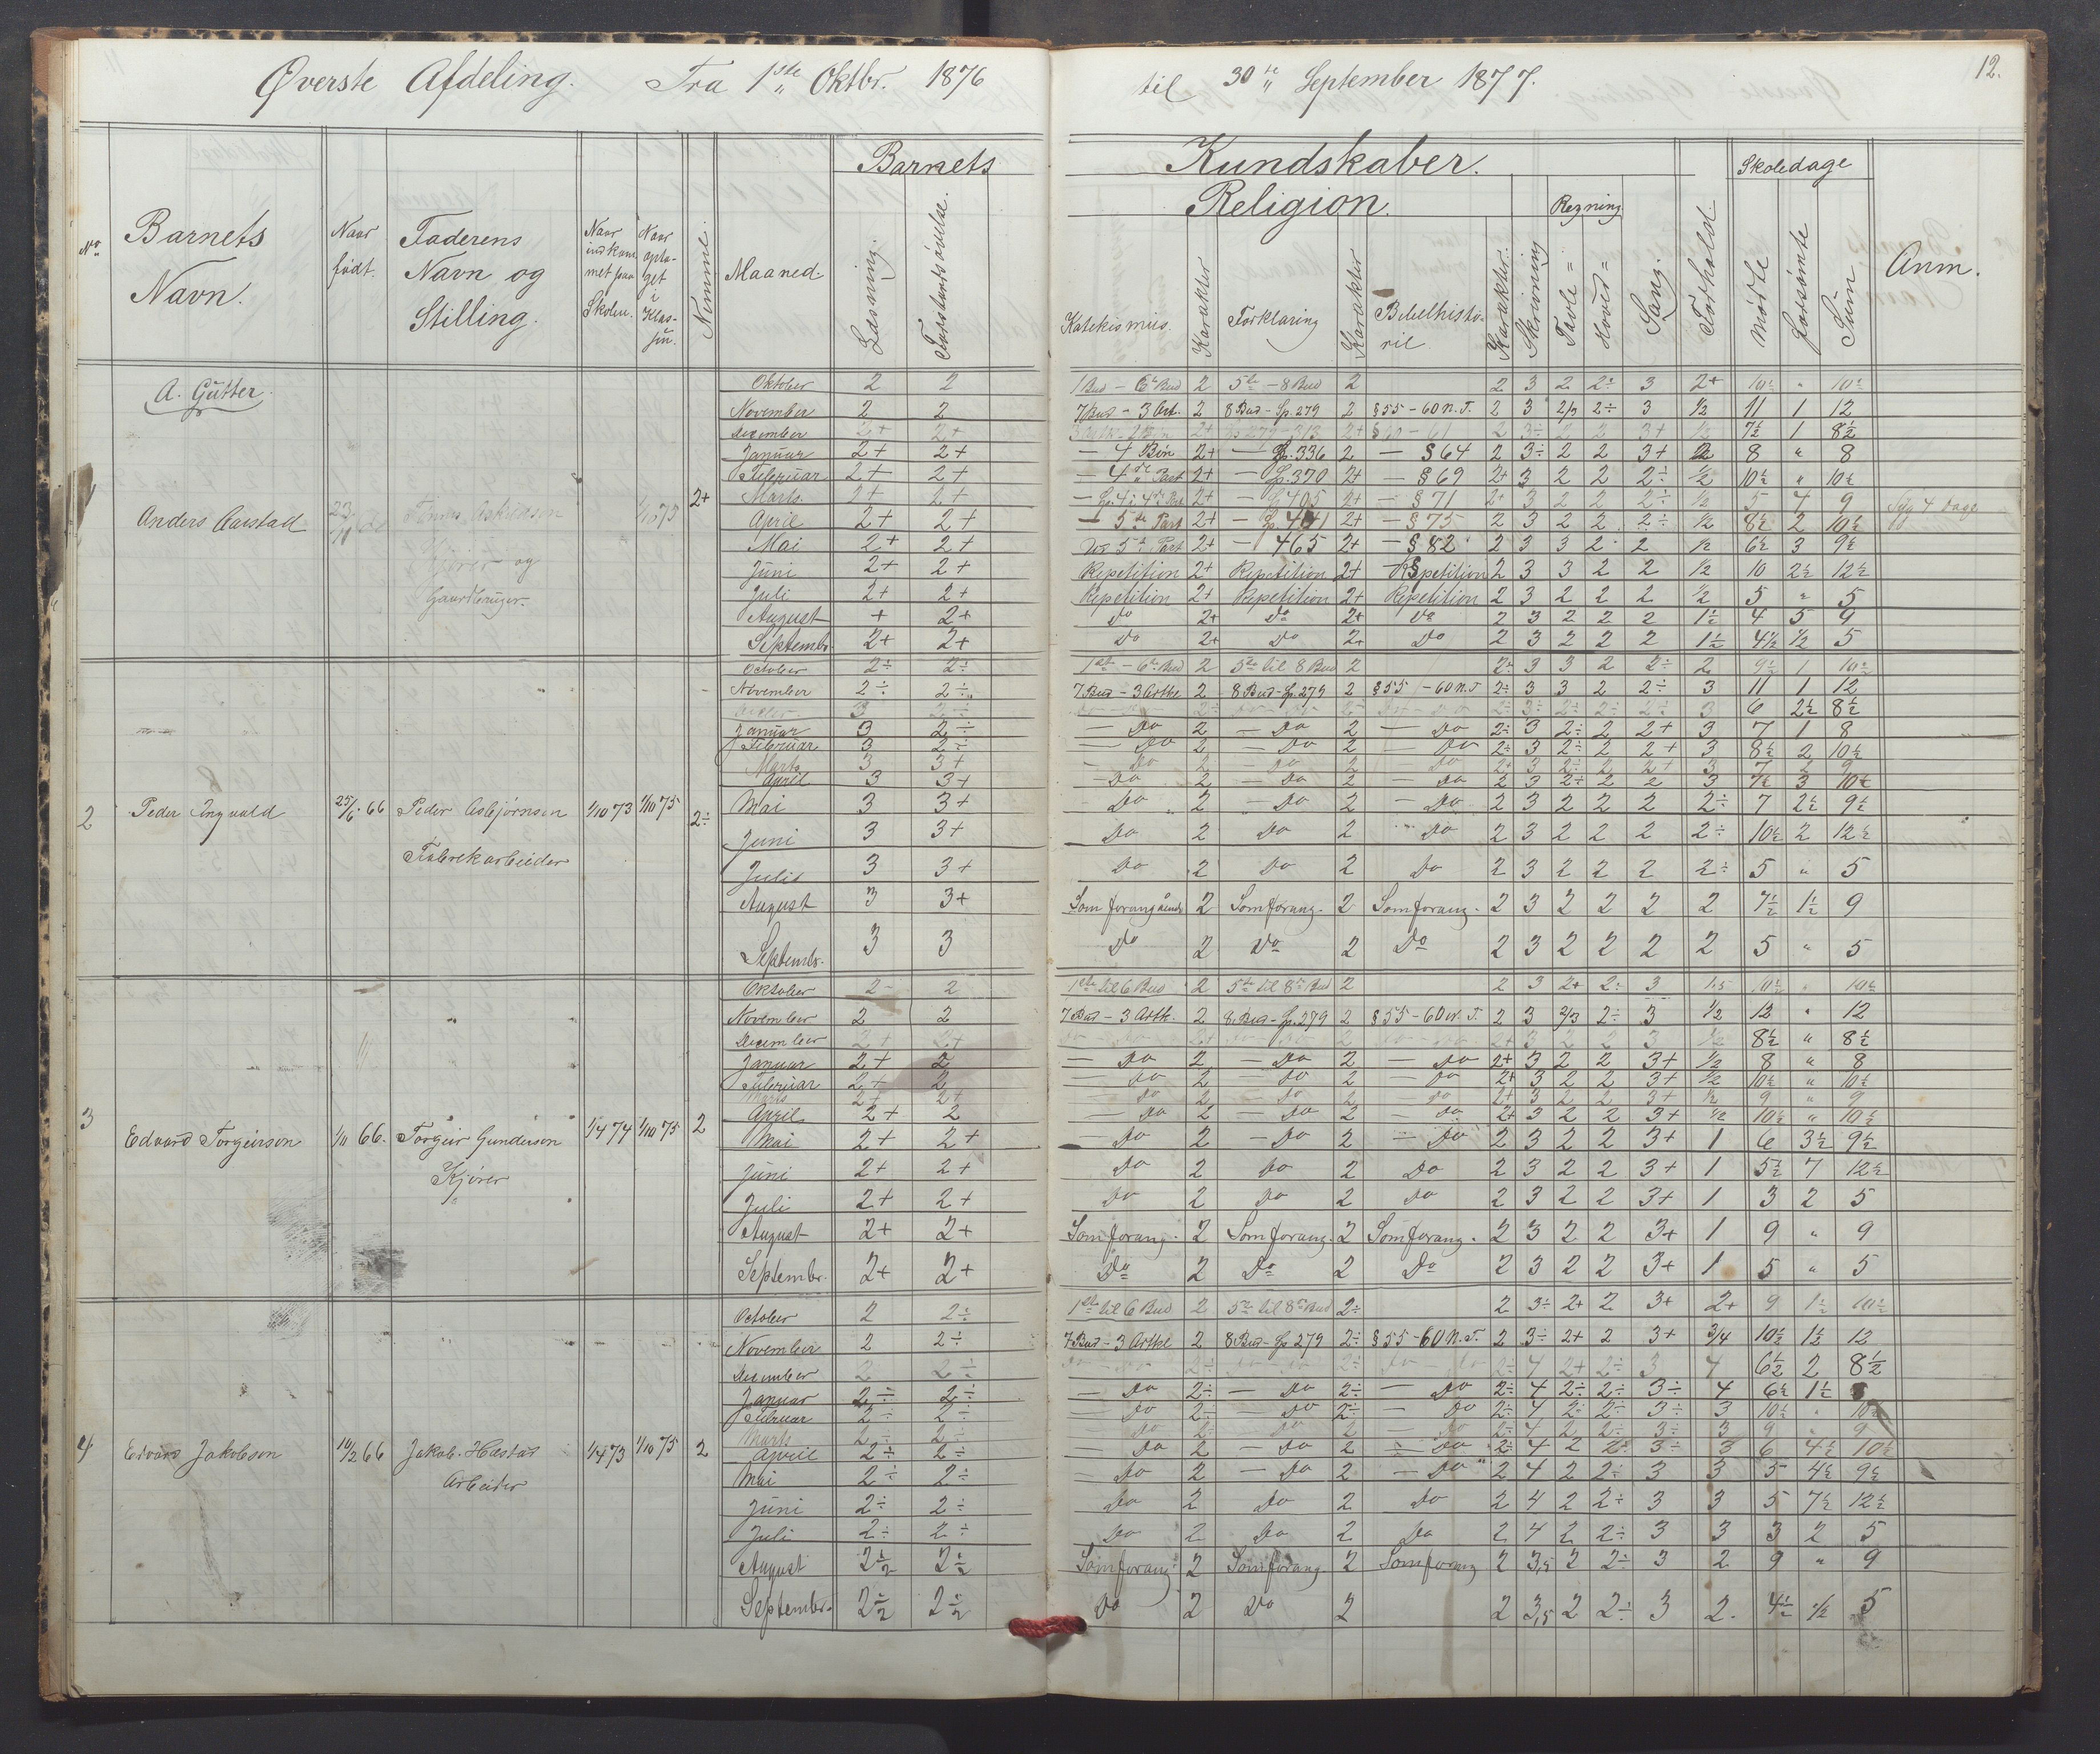 Øverste Afdeling. Fra 1ste Oktbr. 1876 til 30te September 1877. 12.
Barnets Kundskaber. Skoledage
Religion. Regning
No Barnets Navn. Naar født. Faderens Navn og Stilling. Naar indkommet paa Skolen. Naar optaget i Klassen. Nummer. Maaned. Læsning. Forstandsøvelse. Katekismus. Karakter Forklaring Karakter Bibelhistorie Karakter. Skrivning Tavle= Hoved= Sang. Forhold. Mødte Forsømte Sum Anm.
A. Gutter.
Oktober 2 2 1 Bud - 6te Bud 2 5te - 8 Bud 2 2 3 2 2÷ 3 2+ 10½ " 10½
November 2 2 7 Bud - 3 Art. 2 8 Bud - Sp. 279 2 §55 - 60 N.T. 2 3 2/3 2÷ 3 ½ 11 1 12
December 2+ 2+ 7½ 1 8½
Januar 2+ 2+ - 4 Bøn 2+ - Sp. 336 2 - §64 2 3÷ 2 2 3+ 8 " 8
Februar 2+ 2+ - 4de Part 2+ - Sp. 370 2+ - §69 2+ 3 2 2 2÷ ½ 10½ " 10½
Marts 2+ 2+ 2+ - §71 2+ 3 2 2 2÷ ½ 5 4 9 Syg 4 Dage
1 Anders Aarstad 2+ April 2+ 2+ - 5te Part 2+ 2+ - §75 2 3 2 2 2÷ ½ 8½ 2 10½
Mai 2+ 2+ 5te Part 2+ - 465 2+ - §82 2 3 3 2 2 ½ 6½ 3 9½
Kjører og
Juni 2+ 2+ Repetition 2+ Repetition 2+ Repetition 2 3 3 2 2 ½ 10 2½ 12½
Juli 2+ 2+ Repetition 2+ Repetition 2+ Repetition 2 3 2 2 2 ½ 5 " 5
August + 2+ Do 2+ Do 2+ Do 2 3 2 2 2 1½ 4 5 9
Septembr 2+ 2+ Do 2+ Do 2+ Do 2 3 2 2 2 1½ 4½ ½ 5
October 2÷ 2÷ 1ste - 6te Bud 2 5te til 8 Bud 2 2÷ 3 3 2 2÷ 2 9½ 1 10½
November 2÷ 2÷ 7 Bud - 3 Artkl 2 8 Bud - Sp. 279 2 §55 - 60 N.T 2÷ 3 3 2 2÷ 3 11 1 12
3 6 2½ 8½
Januar 3 2÷ - Do 2 - Do 2 - Do 2÷ 3 2÷ 2 2+ 3 7 1 8
Februar 3 2÷ - Do 2 - Do 2 - Do 2÷ 3 2÷ 2 2+ 3 8½ 2 10½
Marts 3 3+ - Do 2 - Do 2 - Do 2+ 3 2÷ 2 2+ 3 7 2 9
April 3 3+ - Do 2 - Do 2 - Do 2 3 2÷ 2 2 3 7½ 3 10½
2 Peder Ingvald 25/6. 66 Peder Asbjørnsen 1/10 73 1/10 75 2÷ Mai 3 3+ - Do 2 - Do 2 - Do 2 3 2 2 2 2÷ 7 2½ 9½
Fabrekarbeider
Juni 3 3+ Do 2 Do 2 Do 2 3 2 2 2 2÷ 10½ 2 12½
Juli 3 3+ Do 2 Do 2 Do 2 3 2 2 2 2÷ 5 " 5
August 3 3+ Som forangående 2 Som forang. 2 Som forang. 2 3 2 2 2 2 7½ 1½ 9
Septembr. 3 3 Do 2 Do 2 Do 2 3 2 2 2 2 5 " 5
Oktober 2- 2 1ste til 6 Bud 2 5te til 8de Bud 2 2 3 2+ 2÷ 3 1,5 10½ " 10½
November 2 2 7 Bud - 3 Artk. 2 8 Bud - Sp. 279 2 §55 - 60 N.T. 2 3 2/3 2÷ 3 ½ 12 " 12
December 2+ 2+ 8½ " 8½
Januar 2+ 2 - Do 2 - Do 2 - Do 2+ 3 2 2 3+ ½ 8 " 8
Februar 2+ 2 - Do 2 - Do 2 - Do 2+ 3 2 2 3+ ½ 10½ " 10½
Marts 2+ 2+ - Do 2 - Do 2 - Do 2+ 3 2 2 3+ ½ 9 " 9
April 2+ 2 - Do 2 - Do 2 - Do 2+ 3 2 2 3+ ½ 10½ " 10½
3 Edvard Torgeirson 1/11 66. Torgeir Gunderson 1/4 74 1/10 75 2 Mai 2+ 2+ - Do 2 - Do 2 - Do 2 3 2 2 3+ 1 6 3½ 9½
Kjører
Juni 2+ 2+ Do 2 Do 2 Do 2 3 2 2 3+ 1 5½ 7 12½
Juli 2+ 2+ Do 2 Do 2 Do 2 3 2 2 3+ 1 3 2 5
August 2+ 2+ Som forang. 2 Som forang. 2 Som forang. 2 3 2 2 3+ 1 9 " 9
Septembr. 2+ 2+ Do 2 Do 2 Do 2 3 2 2 3+ 1 5 " 5
October 2 2÷ 1ste til 6 Bud 2 5te til 8de Bud 2÷ 2 3÷ 2+ 2 3+ 2+ 9 1½ 10½
November 2 2÷ 7 Bud - 3 Artkl 2 8 Bud - Sp 279 2÷ §55 - 60 N.T. 2 3÷ 2+ 2 3+ 3/4 10½ 1½ 12
December 2 2÷ 2÷ 4 2+ 2÷ 3 4 6½ 2 8½
Januar 2÷ 2÷ - Do 2÷ - Do 2÷ - Do 2÷ 4 2÷ 2÷ 3÷ 4 6½ 1½
Februar 2÷ 2÷ - Do 2÷ - Do 2÷ - Do 2÷ 4 2÷ 2÷ 3÷ 3 10½ " 10½
Marts 2÷ 2÷ - Do 2÷ - Do 2 - Do 2÷ 4 2 2÷ 3÷ 3 9 " 9
April 2÷ 2÷ - Do 2 - Do 2 - Do 2÷ 4 2 2÷ 3÷ 3 6 4½ 10½
4 Edvard Jakobson 10/2 66 Jakob. Hæstad 1/4 73 1/10 75 2 Mai 2÷ 2÷ - Do 2 - Do 2 - Do 2 4 2 2÷ 3 3 5 4½ 9½
Arbeider
Juni 2÷ 2÷ Do 2 Do 2 Do 2 4 2 2÷ 3 3 5 7½ 12½
Juli 2÷ 2÷ Do 2 Do 2 Do 2 4 2 2÷ 3 3 3 2 5
August 2½ 2½ Som forang 2 Som forang 2 Som forang 2 3,5 2 2÷ 3 2 9 " 9
Septembr. 2½ 2½ Do 2 Do 2 2 3,5 2 2÷ 3 2. 4½ ½ 5